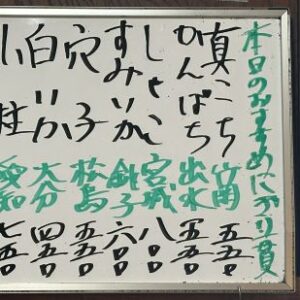 本日のおすすめにぎり貫
真こち 竹岡 五五〇
かんぱち 出水 五五〇
しゃこ 宮城 八〇〇
すみいか 銚子 六〇〇
穴子 松島 五五〇
白いか 大分 四五〇
小柱 愛知 七五〇